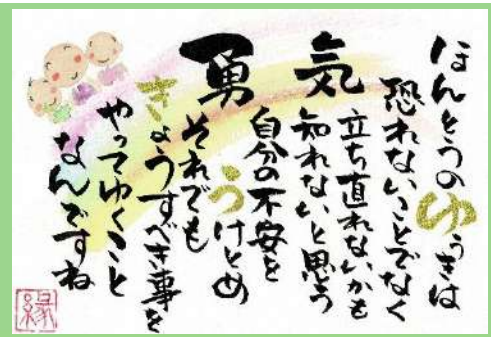 勇気
ほんとうのゆうきは
恐れないことでなく
立ち直れないかも
知れないと思う
自分の不安を
うけとめ
それでも
きょうすべき事を
やってゆくこと
なんですね
縁